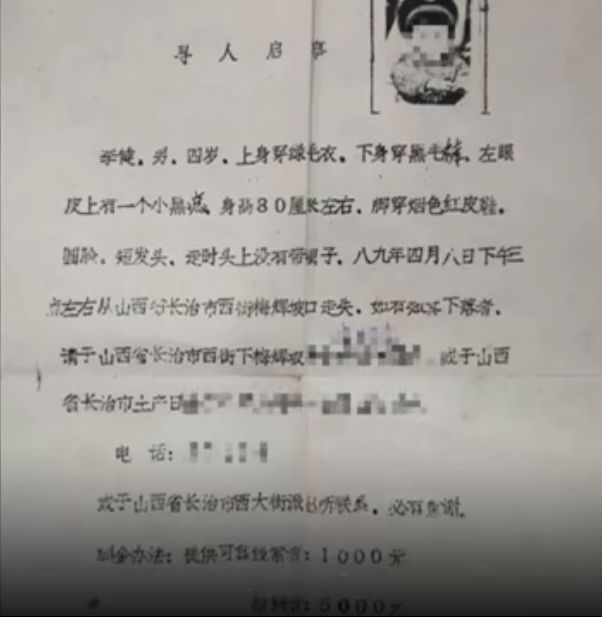 寻人启事
李健，男，四岁，上身穿绿毛衣，下身穿黑毛裤，左眼
皮上有一个小黑点，身高80厘米左右，脚穿烟色红皮鞋，
圆脸，短发头，走时头上没有带帽子，八九年四月八日下午三
点左右从山西省长治市西街梅辉坡口走失，如有知其下落者，
请于山西省长治市西街下梅辉坡 或于山西
省长治市土产日
电话：
或于山西省长治市西大街派出所联系，必有重谢。
办法：提供可靠 者：1000元
5000元